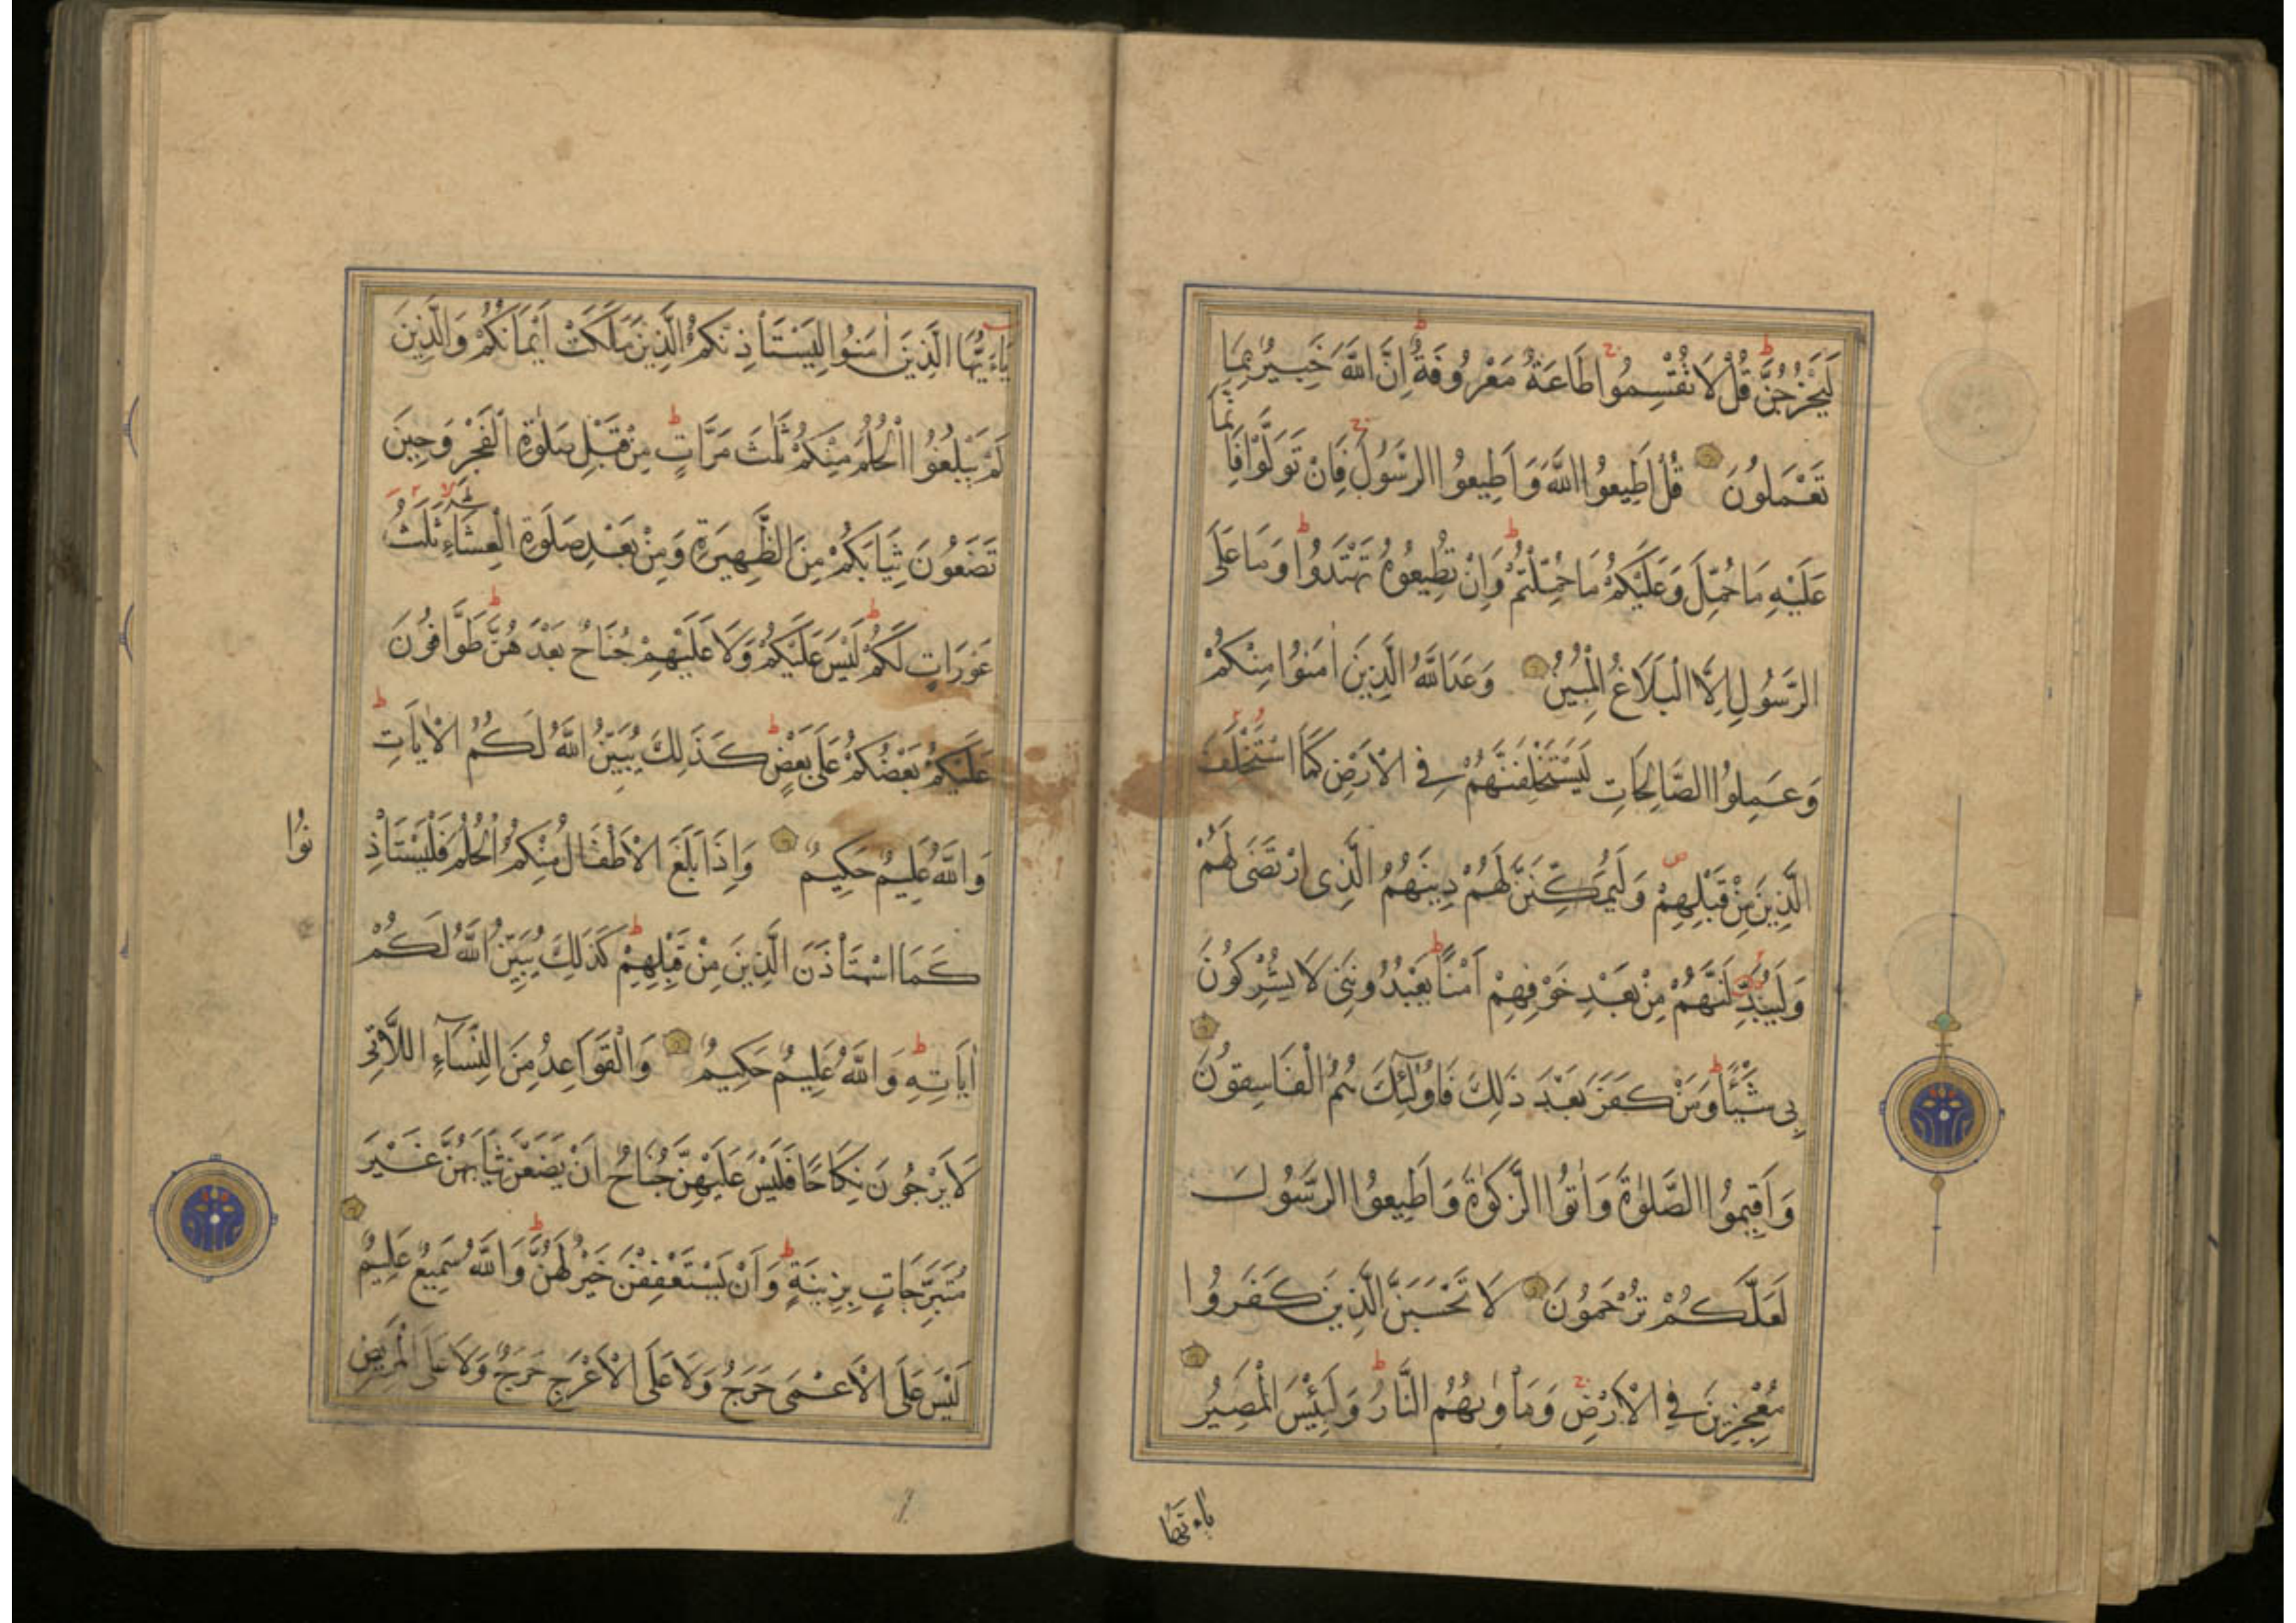 لَيَخْرُجُنَّ قُلْ لَا تُقْسِمُوا طَاعَةٌ مَعْرُوفَةٌ اِنَّ اللّٰهَ خَبِيرٌ بِمَا
تَعْمَلُونَ قُلْ اَطِيعُوا اللّٰهَ وَاَطِيعُوا الرَّسُولَ فَاِنْ تَوَلَّوْا فَاِ
نَّمَا
عَلَيْهِ مَا حُمِّلَ وَعَلَيْكُمْ مَا حُمِّلْتُمْ وَاِنْ تُطِيعُوهُ تَهْتَدُوا وَمَا عَلَى
الرَّسُولِ اِلَّا الْبَلَاغُ الْمُبِينُ وَعَدَ اللّٰهُ الَّذِينَ اٰمَنُوا مِنْكُمْ
وَعَمِلُوا الصَّالِحَاتِ لَيَسْتَخْلِفَنَّهُمْ فِي الْاَرْضِ كَمَا اسْتَخْلَفَ
الَّذِينَ مِنْ قَبْلِهِمْ وَلَيُمَكِّنَنَّ لَهُمْ دِينَهُمُ الَّذِى ارْتَضَى لَهُمْ
وَلَيُبَدِّلَنَّهُمْ مِنْ بَعْدِ خَوْفِهِمْ اَمْنًا يَعْبُدُونَنِى لَا يُشْرِكُونَ
بِى شَيْئًا وَمَنْ كَفَرَ بَعْدَ ذَلِكَ فَاُولٰٓئِكَ هُمُ الْفَاسِقُونَ
وَاَقِيمُوا الصَّلٰوةَ وَاٰتُوا الزَّكٰوةَ وَاَطِيعُوا الرَّسُولَ
لَعَلَّكُمْ تُرْحَمُونَ لَا تَحْسَبَنَّ الَّذِينَ كَفَرُوا
مُعْجِزِينَ فِي الْاَرْضِ وَمَأْوٰىهُمُ النَّارُ وَلَبِئْسَ الْمَصِيرُ
يَاءَيُّهَا
يَاءَيُّهَا الَّذِينَ اٰمَنُوا لِيَسْتَأْذِنْكُمُ الَّذِينَ مَلَكَتْ اَيْمَانُكُمْ وَالَّذِينَ
لَمْ يَبْلُغُوا الْحُلُمَ مِنْكُمْ ثَلٰثَ مَرَّاتٍ مِنْ قَبْلِ صَلٰوةِ الْفَجْرِ وَحِينَ
تَضَعُونَ ثِيَابَكُمْ مِنَ الظَّهِيرَةِ وَمِنْ بَعْدِ صَلٰوةِ الْعِشَاءِ ثَلٰثُ
عَوْرَاتٍ لَكُمْ لَيْسَ عَلَيْكُمْ وَلَا عَلَيْهِمْ جُنَاحٌ بَعْدَهُنَّ طَوَّافُونَ
عَلَيْكُمْ بَعْضُكُمْ عَلَى بَعْضٍ كَذَلِكَ يُبَيِّنُ اللّٰهُ لَكُمُ الْاٰيَاتِ
وَاللّٰهُ عَلِيمٌ حَكِيمٌ وَاِذَا بَلَغَ الْاَطْفَالُ مِنْكُمُ الْحُلُمَ فَلْيَسْتَأْذِ
نُوا
كَمَا اسْتَأْذَنَ الَّذِينَ مِنْ قَبْلِهِمْ كَذَلِكَ يُبَيِّنُ اللّٰهُ لَكُمْ
اٰيَاتِهِ وَاللّٰهُ عَلِيمٌ حَكِيمٌ وَالْقَوَاعِدُ مِنَ النِّسَآءِ اللَّاتِى
لَا يَرْجُونَ نِكَاحًا فَلَيْسَ عَلَيْهِنَّ جُنَاحٌ اَنْ يَضَعْنَ ثِيَابَهُنَّ غَيْرَ
مُتَبَرِّجَاتٍ بِزِينَةٍ وَاَنْ يَسْتَعْفِفْنَ خَيْرٌ لَهُنَّ وَاللّٰهُ سَمِيعٌ عَلِيمٌ
لَيْسَ عَلَى الْاَعْمَى حَرَجٌ وَلَا عَلَى الْاَعْرَجِ حَرَجٌ وَلَا عَلَى الْمَرِيضِ